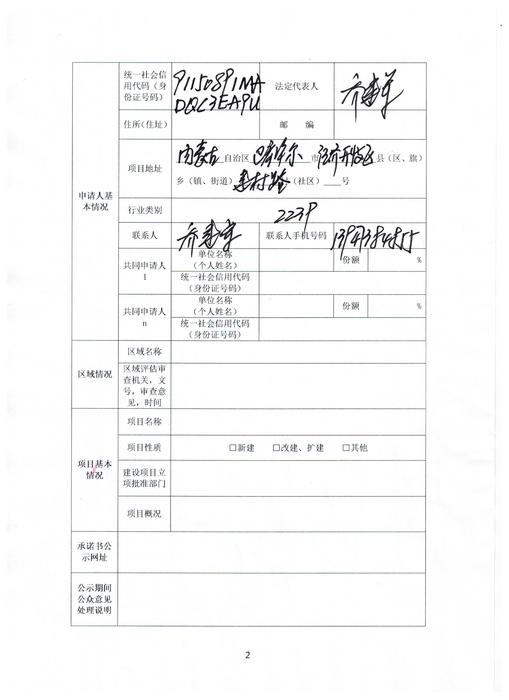 统一社会信
用代码（身
份证号码）
91150891MA
DQC3EA9U
法定代表人
住所(住址)
邮 编
申请人基
本情况
项目地址
内蒙古 自治区 巴彦淖尔 市 经济开发区 县（区、旗）
乡（镇、街道） （社区） 号
行业类别
2239
联系人
联系人手机号码
共同申请人
1
单位名称
（个人姓名）
份额
%
统一社会信用代码
（身份证号码）
共同申请人
n
单位名称
（个人姓名）
份额
%
统一社会信用代码
（身份证号码）
区域情况
区域名称
区域评估审
查机关，文
号，审查意
见，时间
项目基本
情况
项目名称
项目性质
□新建 □改建、扩建 □其他
建设项目立
项批准部门
项目概况
承诺书公
示网址
公示期间
公众意见
处理说明
2